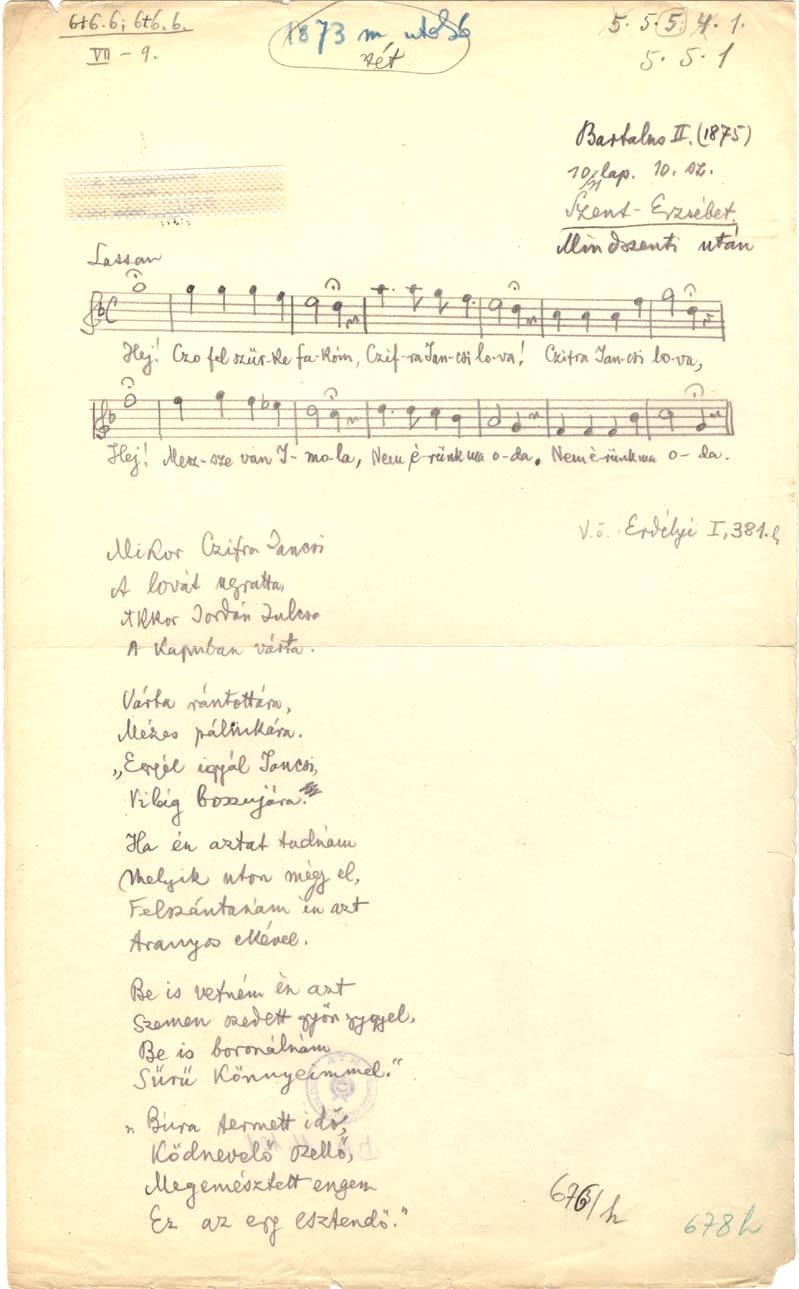 6+6.6; 6+6.6.
VII - 9.
1873 m. utolsó
rét
5. 5. 5. 4. 1.
5. 5. 1
Bartalus II. (1875)
10. lap. 10. sz.
Szent-Erzsébet.
Mindszenti után
Lassan
Hej! Czo fel szür-ke fa-kóm, Czif-ra Jan-csi lo-va! Czifra Jan-csi lo-va,
Hej! Mesz-sze van I-mo-la, Nem é-rünk ma o-da. Nem é-rünk ma o-da.
V.ö. Erdélyi I, 381.
Mikor Czifra Jancsi
A lovát ugratta,
Akkor Jordán Julcsa
A Kapuban várta.
Várta rántottára,
Mézes pálinkára.
„Egyél igyál Jancsi,
Világ bosszujára."
Ha én aztat tudnám
Melyik uton mégy el,
Felszántanám én azt
Aranyos ekével.
Be is vetném én azt
Szemen szedett gyöngygyel,
Be is boronálnám
Sűrű Könnyeimmel."
„Búra termett idő,
Ködnevelő szellő,
Megemésztett engem
Ez az egy esztendő."
676/h
678h